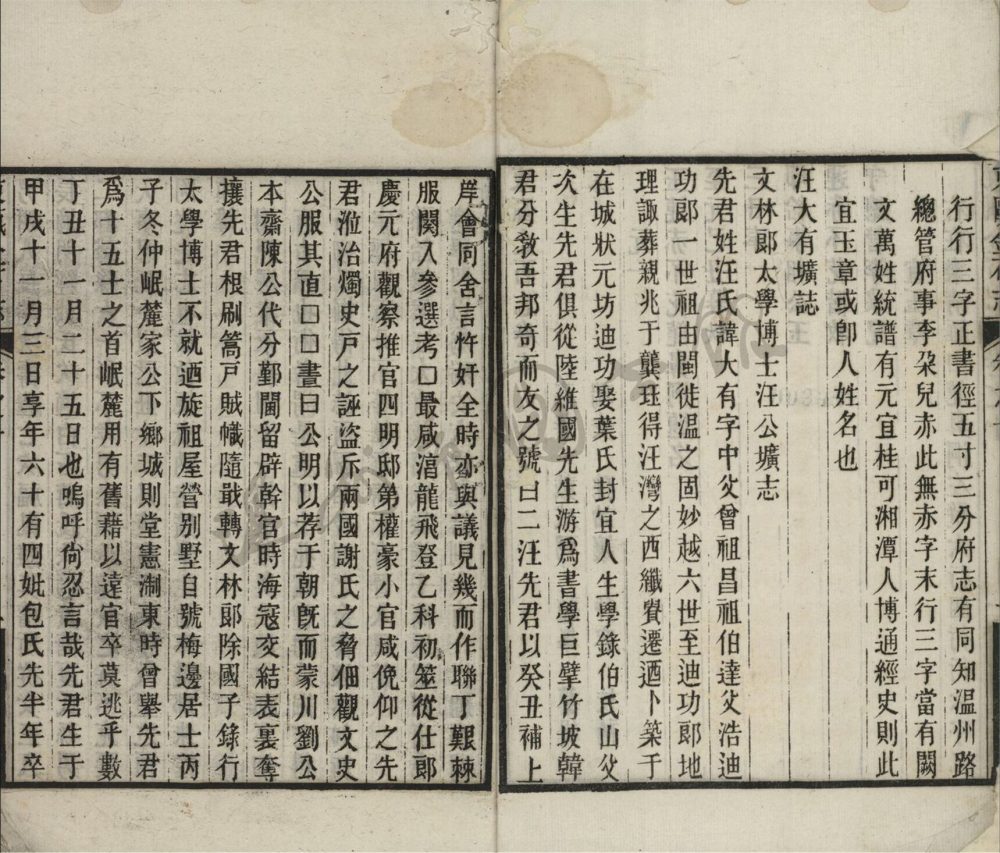 行行三字正書徑五寸三分府志有同知温州路
總管府事李朶兒赤此無赤字末行三字當有闕
文萬姓統譜有元宜桂可湘潭人博通經史則此
宜玉章或卽人姓名也
汪大有壙誌
文林郞太學博士汪公壙志
先君姓汪氏諱大有字中父曾祖昌祖伯達父浩迪
功郞一世祖由閩徙温之固妙越六世至迪功郞地
理諏葬親兆于龔玨得汪灣之西纖賚遷迺卜築于
在城狀元坊迪功娶葉氏封宜人生學錄伯氏山父
次生先君俱從陸維國先生游爲書學巨擘竹坡韓
君分敎吾邦奇而友之號曰二汪先君以癸丑補上
庠會同舍言忤奸全時亦與議見幾而作聯丁艱棘
服闋入參選考口最咸淯龍飛登乙科初筮從仕郞
慶元府觀察推官四明邸弟權豪小官咸俛仰之先
君涖治燭史戸之誣盜斥兩國謝氏之脅佃觀文史
公服其直口口書曰公明以荐于朝旣而蒙川劉公
本齋陳公代分鄞閫留辟幹官時海寇交結表裏奪
攘先君根刷篙戸賊幟隨戢轉文林郞除國子錄行
太學博士不就迺旋祖屋營别墅自號梅邊居士丙
子冬仲岷麓家公下鄉城則堂憲淛東時曾舉先君
爲十五士之首岷麓用有舊藉以遠官卒莫逃乎數
丁丑十一月二十五日也嗚呼尙忍言哉先君生于
甲戌十一月三日享年六十有四妣包氏先半年卒